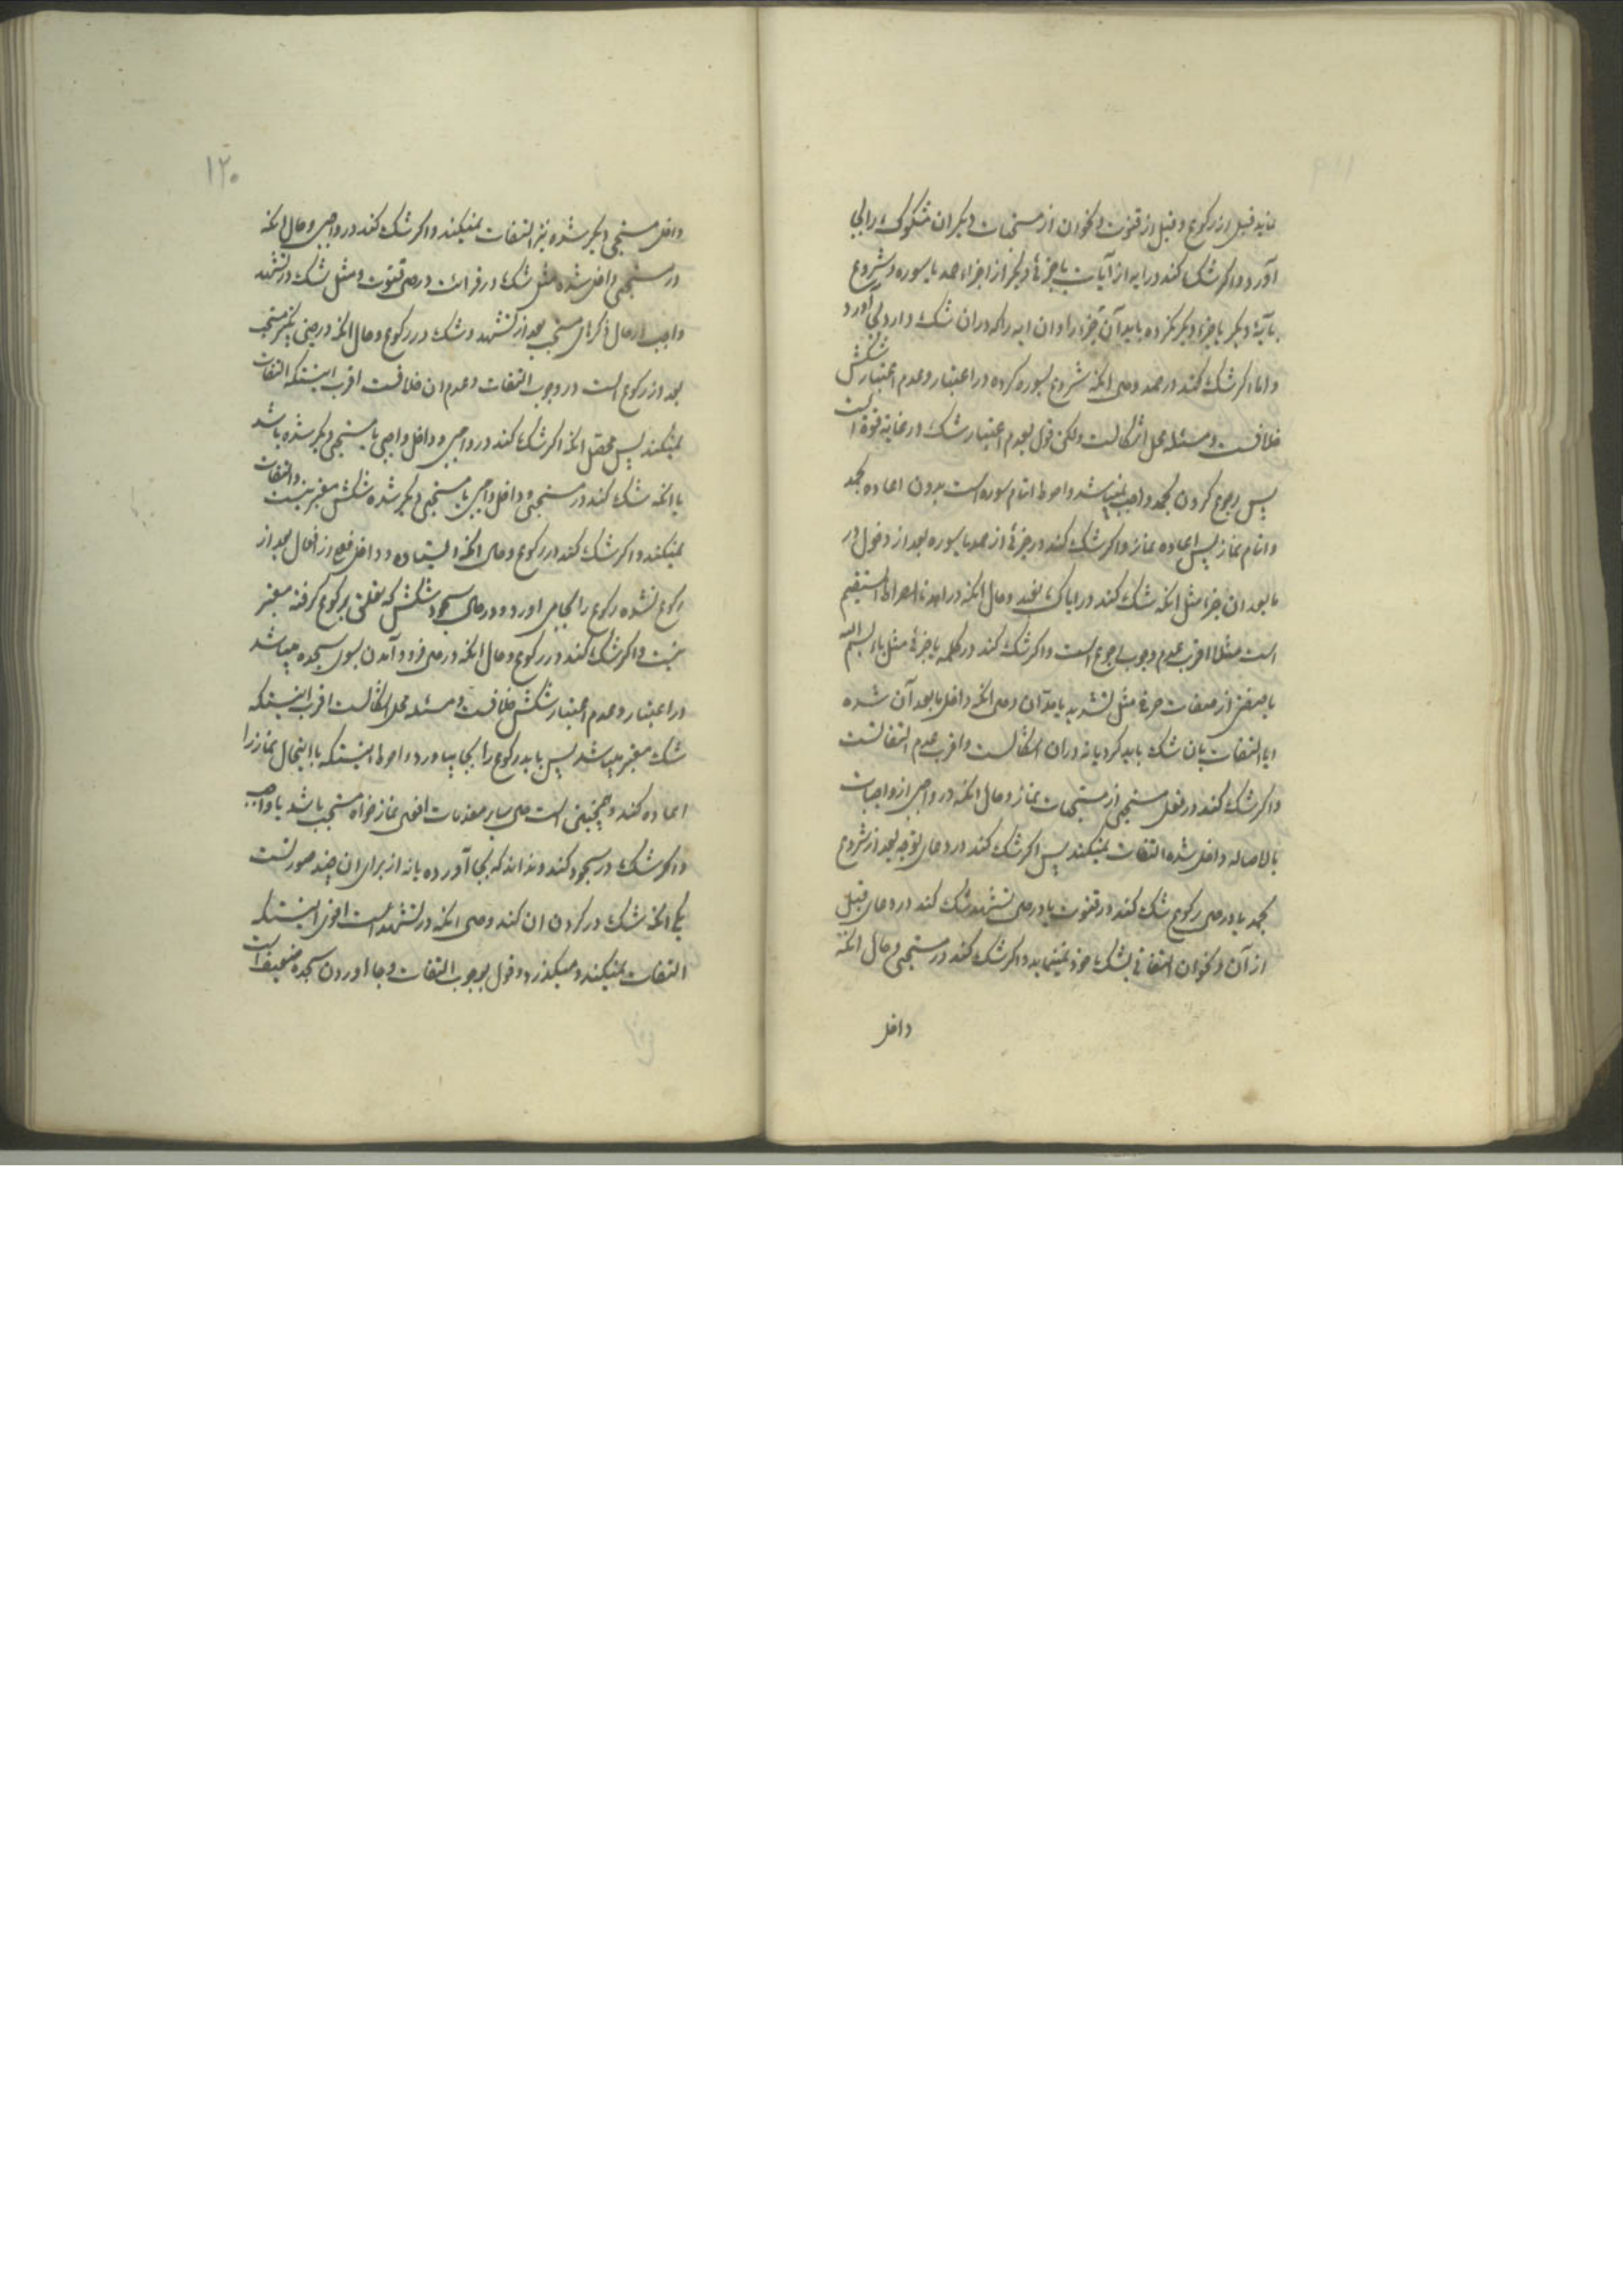 نماید قبل از رکوع و قبل از قنوت و نحو ان از مستحبات دیکر ان مشکوک را بجا
آورد و اکر شک کند در ایه از آیات یا جزئی دیکر از اجزاء حمد یا سوره و شروع
بآیهٔ دیکر یا جزء دیکر نکرده باید آن جزء را و ان ایه را که در ان شک دارد بجا آورد
و اما اکر شک کند در حمد و حال آنکه شروع بسوره کرده در اعتبار و عدم اعتبار شکش
خلافست و مسئله محل اشکالست ولکن قول بعدم اعتبار شک در غایة قوة است
پس رجوع کردن بحمد واجب نمیباشد و احوط اتمام سوره است بدون اعاده حمد
و اتمام نماز پس اعاده نماز و اکر شک کند در جزئی از حمد یا سوره بعد از دخول در
ما بعد ان جزء مثل انکه شک کند در ایاک نعبد و حال انکه در اهدنا الصراط المستقیم
است مثلا اقرب عدم وجوب رجوع است و اکر شک کند در کلمه یا جزئی مثل باء بسم الله
یا صفتی از صفات حرفی مثل تشدید یا مد آن و حال انکه داخل ما بعد آن شده
ایا التفات بان شک باید کرد یا نه در ان اشکالست و اقرب عدم التفاتست
و اکر شک کند در فعل مستحبی از مستحبات نماز و حال انکه در واجبی از واجبات
بالاصاله داخل شده التفات نمیکند پس اکر شک کند در دعای توجه بعد از شروع
بحمد یا در حال رکوع شک کند در قنوت یا در حال تشهد شک کند در دعای قبل
از آن و نحو ان التفاتی بشک خود نمینماید و اکر شک کند در مستحبی و حال انکه
داخل
۱۲۰
داخل مستحبی دیکر شده نیز التفات نمیکند و اکر شک کند در واجبی و حال انکه
در مستحبی داخل شده مثل شک در قرائت در حال قنوت و مثل شک در تشهد
واجب در حال ذکرهای مستحب بعد از تشهد و شک در رکوع و حال انکه در حین تکبیر مستحب
بعد از رکوع است در وجوب التفات و عدم ان خلافست اقرب اینستکه التفات
نمیکند پس محصل انکه اکر شک کند در واجبی و داخل واجبی یا مستحبی دیکر شده باشد
یا انکه شک کند در مستحبی و داخل واجبی یا مستحبی دیکر شده شکش معتبر نیست و التفات
نمیکند و اکر شک کند در رکوع و حال انکه ایستاده و داخل فعلی از افعال بعد از
رکوع نشده رکوع را بجا می اورد و در حال سجود شکش که تعلق برکوع کرفته معتبر
نیست و اکر شک کند در رکوع و حال انکه در حال فرود آمدن بسوی سجده میباشد
در اعتبار و عدم اعتبار شکش خلافست و مسئله محل اشکالست اقرب اینستکه
شک معتبر میباشد پس باید رکوع را بجا بیاورد و احوط اینستکه با اینحال نماز را
اعاده کند و همچنین است حال سایر مقدمات افعال نماز خواه مستحب باشد یا واجب
و اکر شک در سجود کند و نداند که بجا آورده یا نه از برای ان چند صورتست
یکی انکه شک در کردن ان کند و حال انکه در تشهد است اقوی اینستکه
التفات نمیکند و میکذرد و قول بوجوب التفات و بجا اوردن سجده ضعیف است